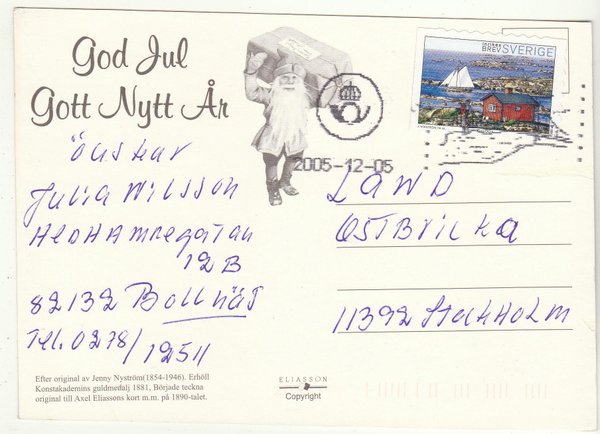 God Jul
Gott Nytt År
önskar
Julia Nilsson
Hedhamregatan
12B
82132 Bollnäs
Tel. 0278/
12511
Efter original av Jenny Nyström(1854-1946). Erhöll
Konstakademins guldmedalj 1881, Började teckna
original till Axel Eliassons kort m.m. på 1890-talet.
ELIASSON
Copyright
BREV SVERIGE
2005-12-05
LAND
ÖSTBRICKA
11392 Stockholm